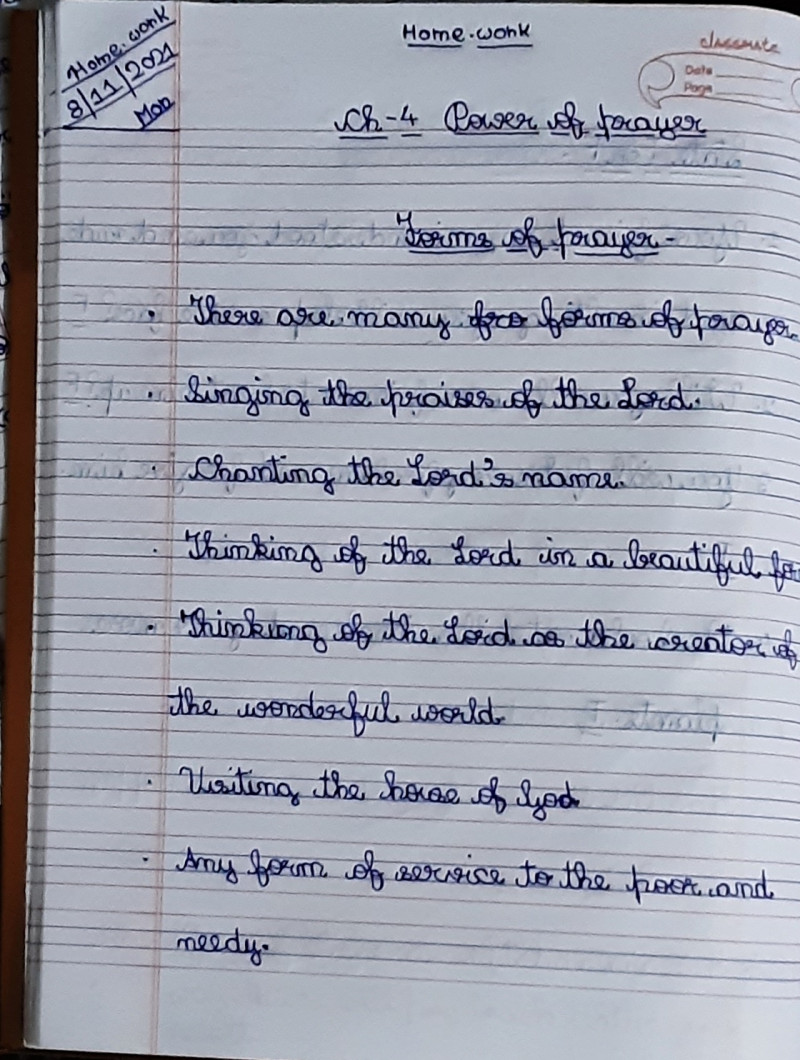 Home.work
Home.work
8/11/2021
Mon
classmate
Date
Page
Ch-4 Power of prayer
Forms of prayer-
. There are many forms of prayer.
. Singing the praises of the Lord.
. Chanting the Lord's name.
. Thinking of the Lord in a beautiful fo
. Thinking of the Lord as the creator of
the wonderful world.
. Visiting the house of God
. Any form of service to the poor and
needy.